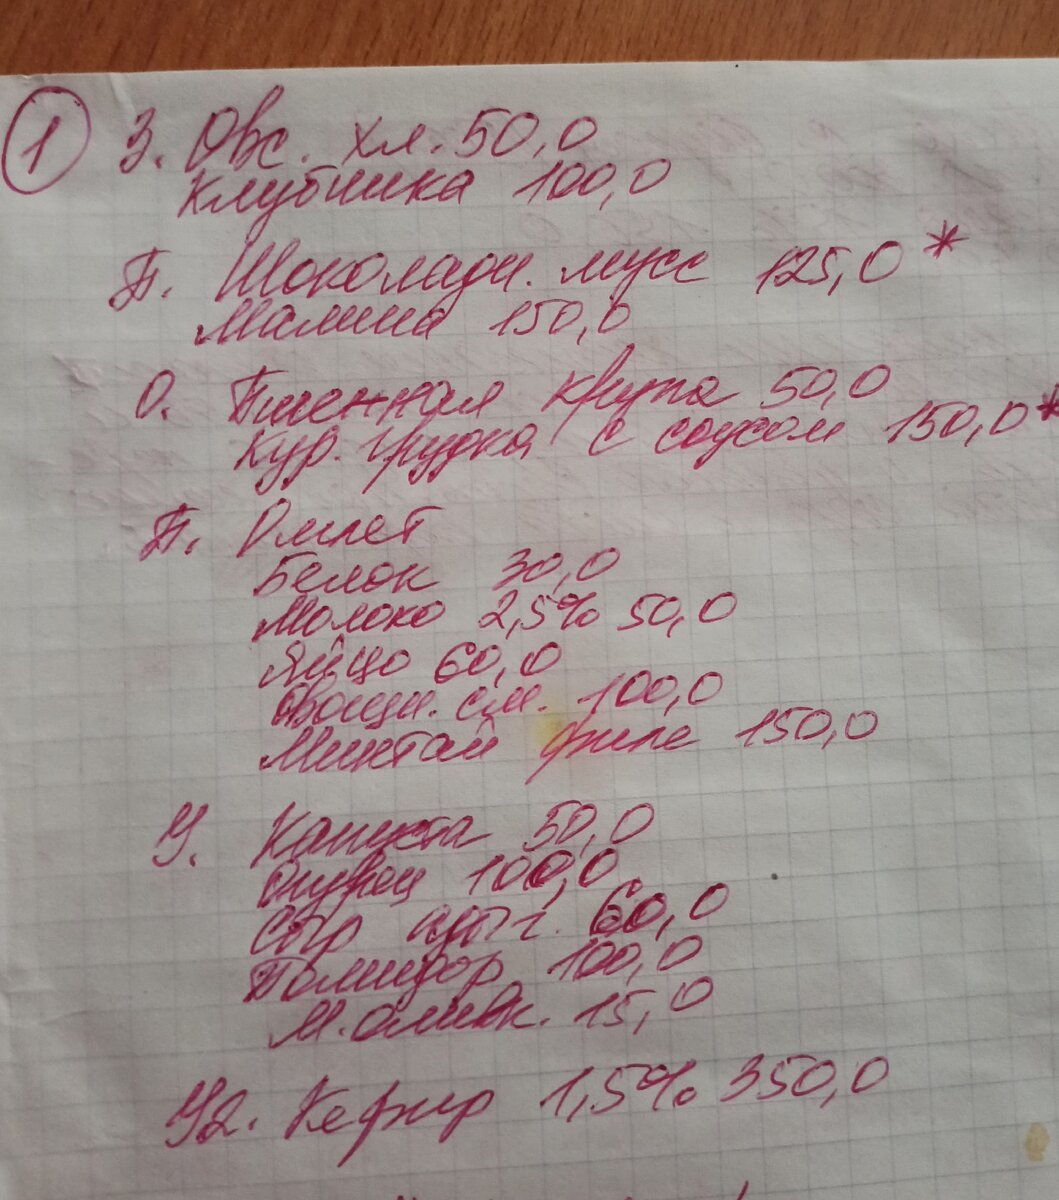 1 З. Овс. хл. 50,0
Клубника 100,0
П. Шоколадн. мусс 125,0 *
Малина 150,0
О. Пшенная крупа 50,0
Кур. грудка с соусом 150,0 *
П. Омлет
Белок 30,0
Молоко 2,5% 50,0
Яйцо 60,0
Овощн. см. 100,0
Минтай филе 150,0
У. Капуста 50,0
Огурец 100,0
Сыр адыг. 60,0
Помидор 100,0
М. оливк. 15,0
У2. Кефир 1,5% 350,0